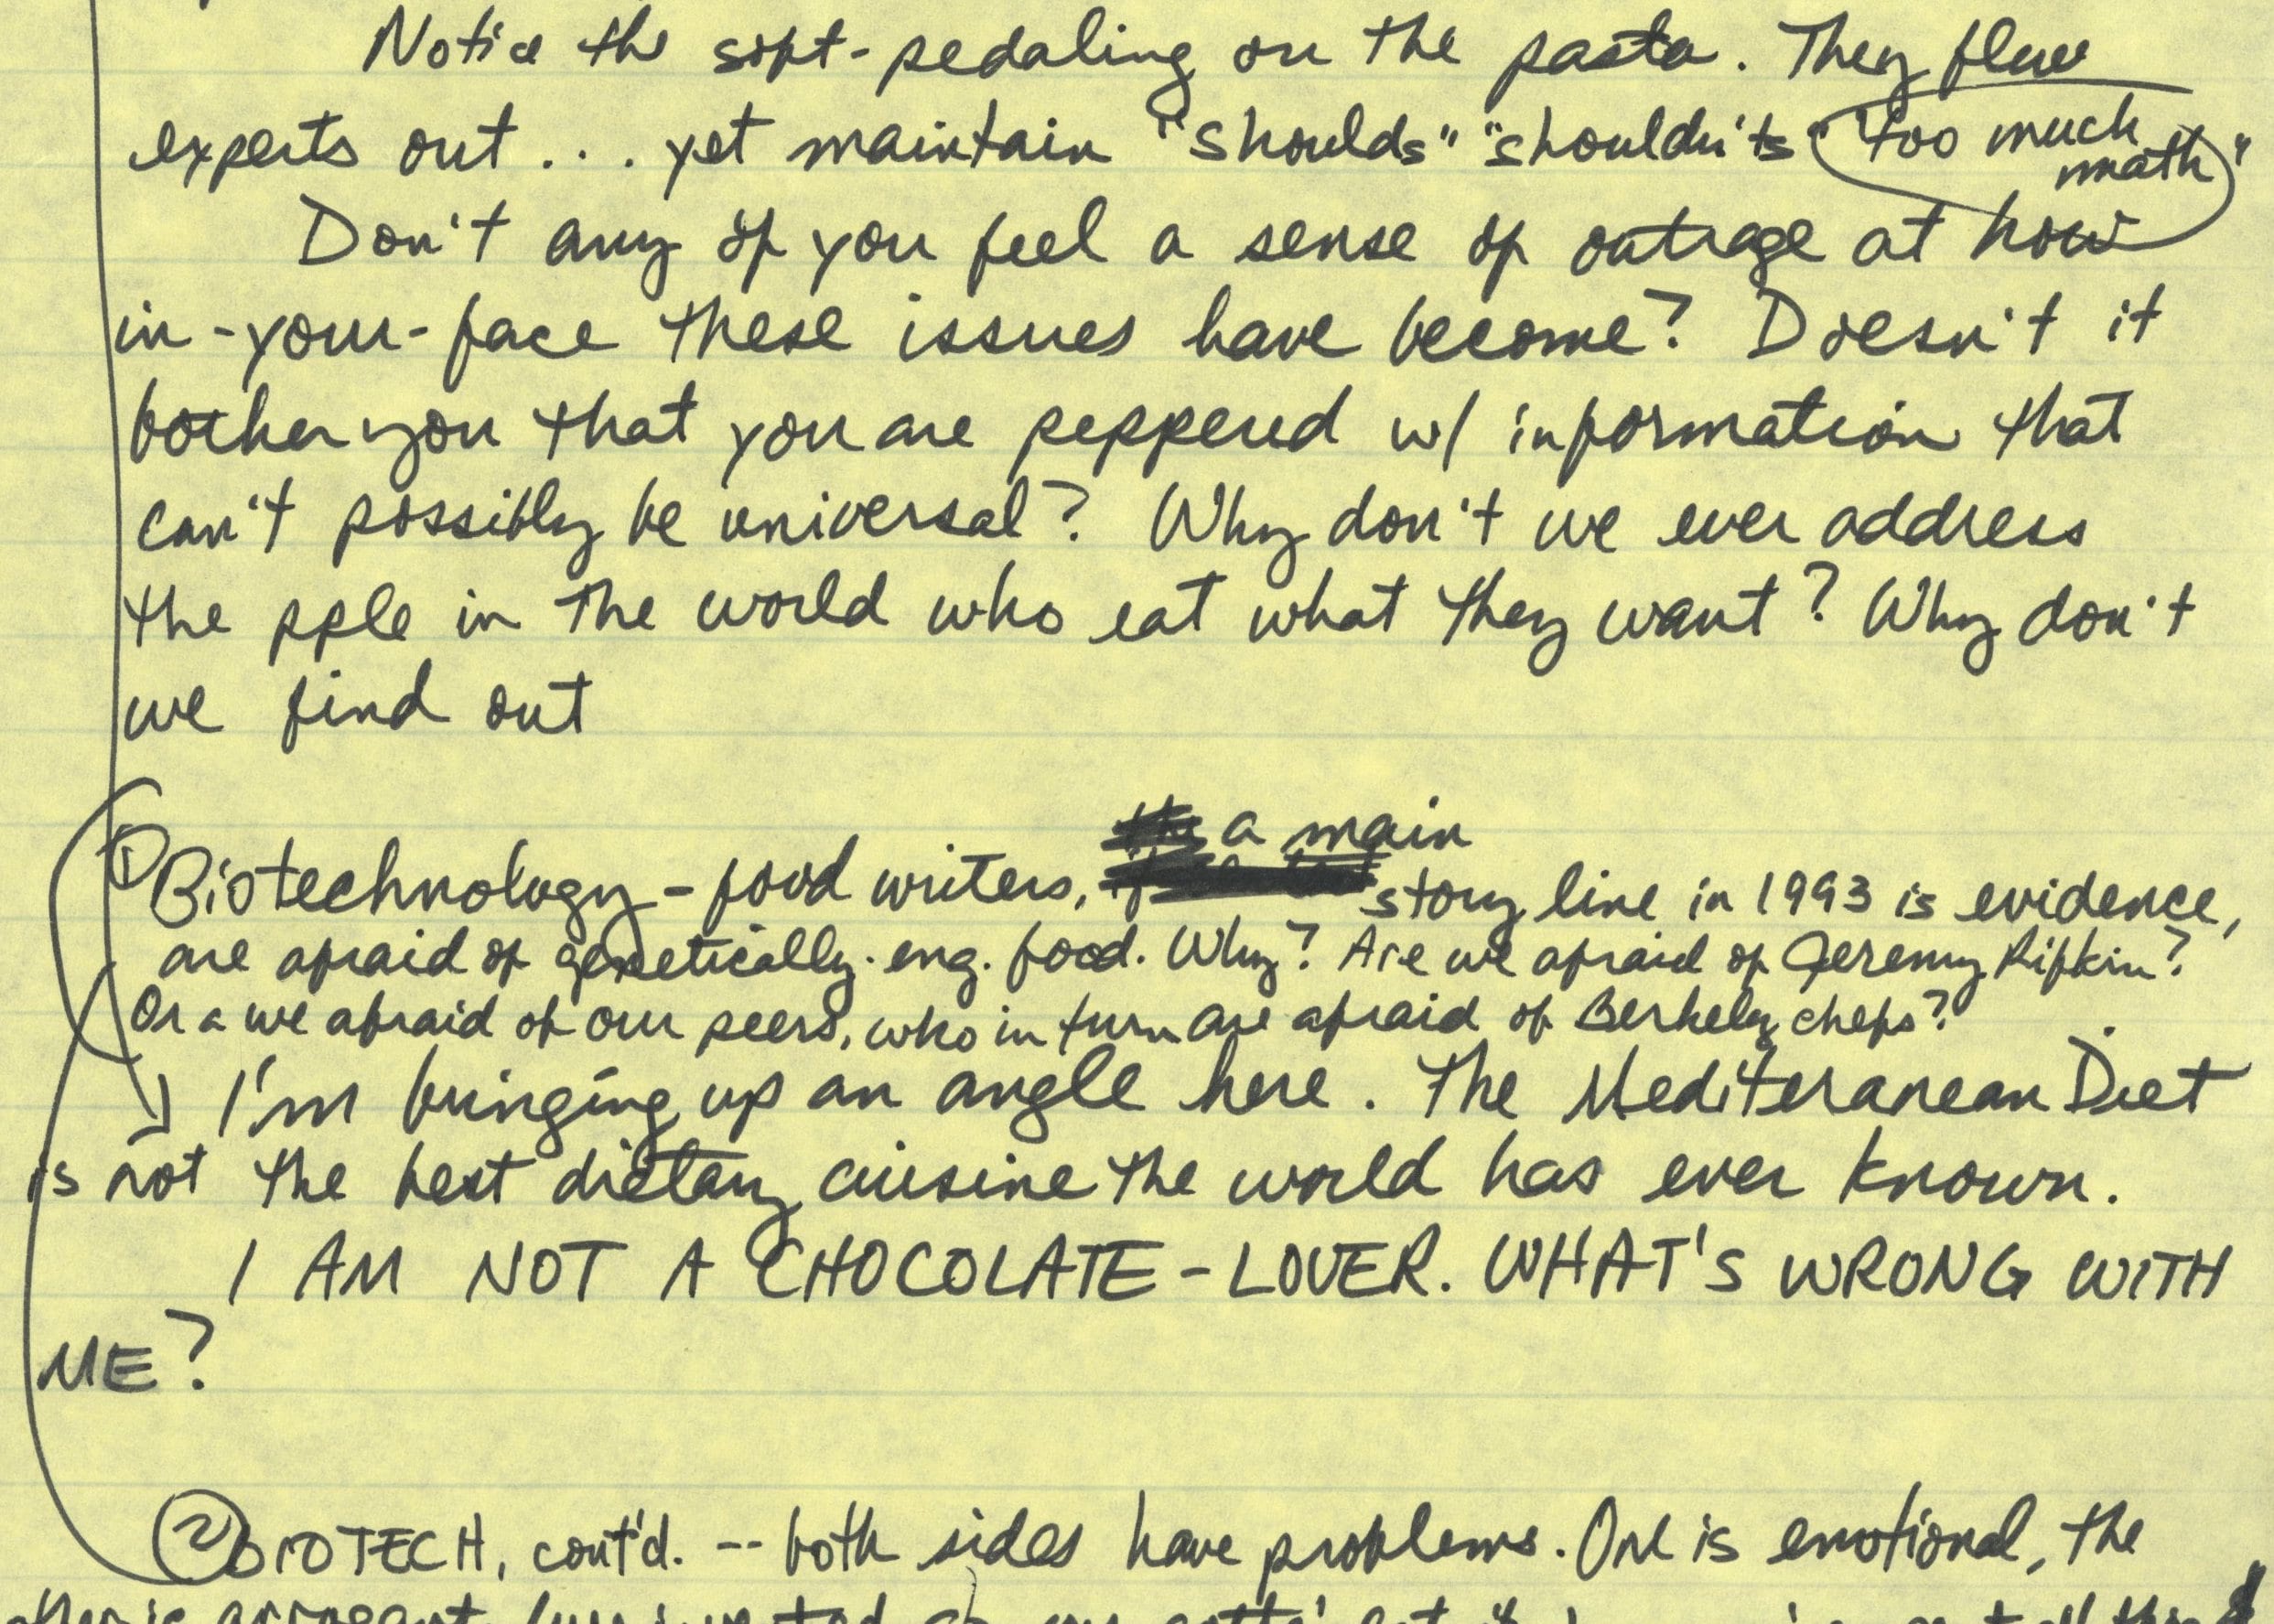 Notice the soft-pedaling on the pasta. They flew
experts out . . . yet maintain "shoulds" "shouldn'ts" "too much
math"
Don't any of you feel a sense of outrage at how
in-your-face these issues have become? Doesn't it
bother you that you are peppered w/ information that
can't possibly be universal? Why don't we ever address
the pple in the world who eat what they want? Why don't
we find out
a main
① Biotechnology - food writers, if story line in 1993 is evidence,
are afraid of genetically-eng. food. Why? Are we afraid of Jeremy Rifkin?
Or a we afraid of our peers, who in turn are afraid of Berkely chefs?
I'm bringing up an angle here. The Mediteranean Diet
is not the best dietary cuisine the world has ever known.
I AM NOT A CHOCOLATE-LOVER. WHAT'S WRONG WITH
ME?
② BIOTECH, cont'd. -- both sides have problems. One is emotional, the
other is arrogant